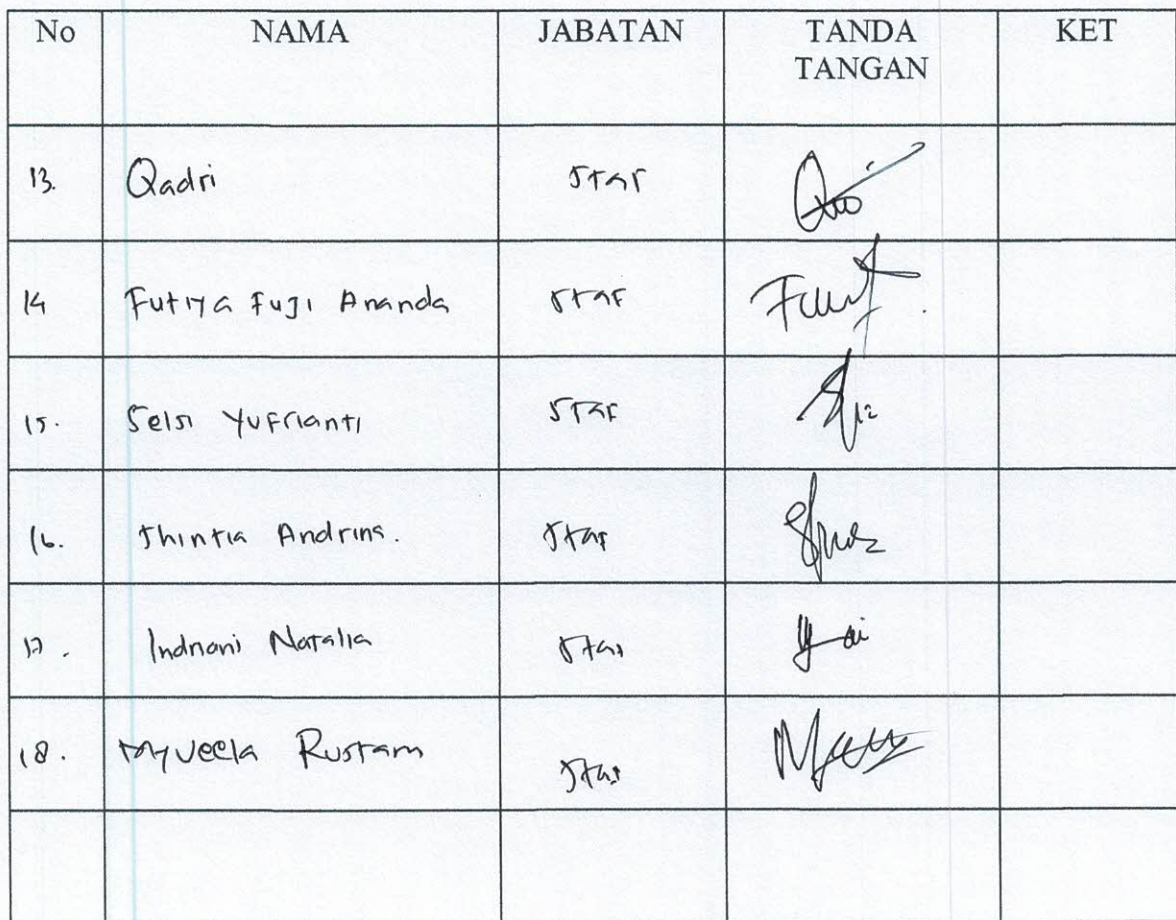 No NAMA JABATAN TANDA TANGAN KET
13. Qadri Staf
14 Futiya Fuji Ananda Staf
15. Selsi Yufrianti Staf
16. Shintia Andrina. Staf
17. Indriani Natalia Staf
18. Myveela Rustam Staf